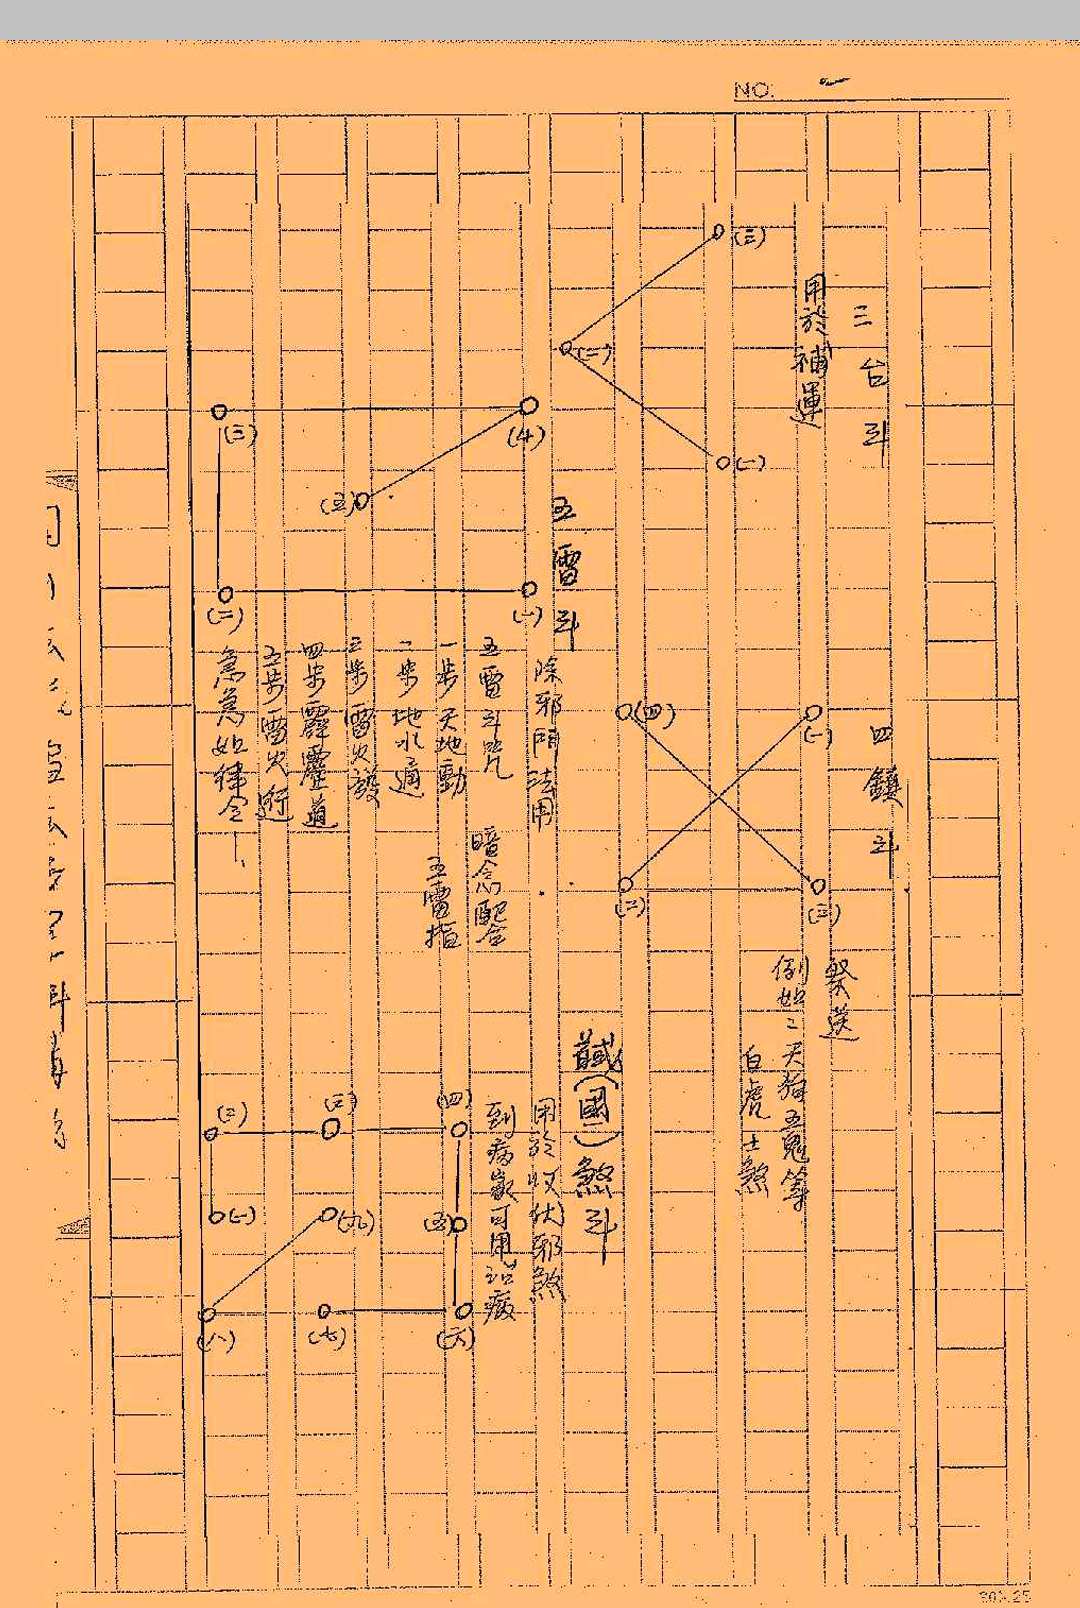 NO:
三台斗
用於補運
(三)
(二)
(一)
四鎮斗
(一)
(二)
(三)
(四)
祭送
例如:天狗五鬼等
白虎 土煞
五雷斗
除邪鬥法用
五雷斗咒
暗念配合
五雷指
一步天地動
二步地水通
三步雷火發
四步霹靂道
五步雷火行
急急如律令
(一)
(二)
(三)
(4)
(五)
馘(國)煞斗
用於收伏邪煞
到病嚴可用治癥
(一)
(二)
(三)
(四)
(五)
(六)
(七)
(八)
(九)